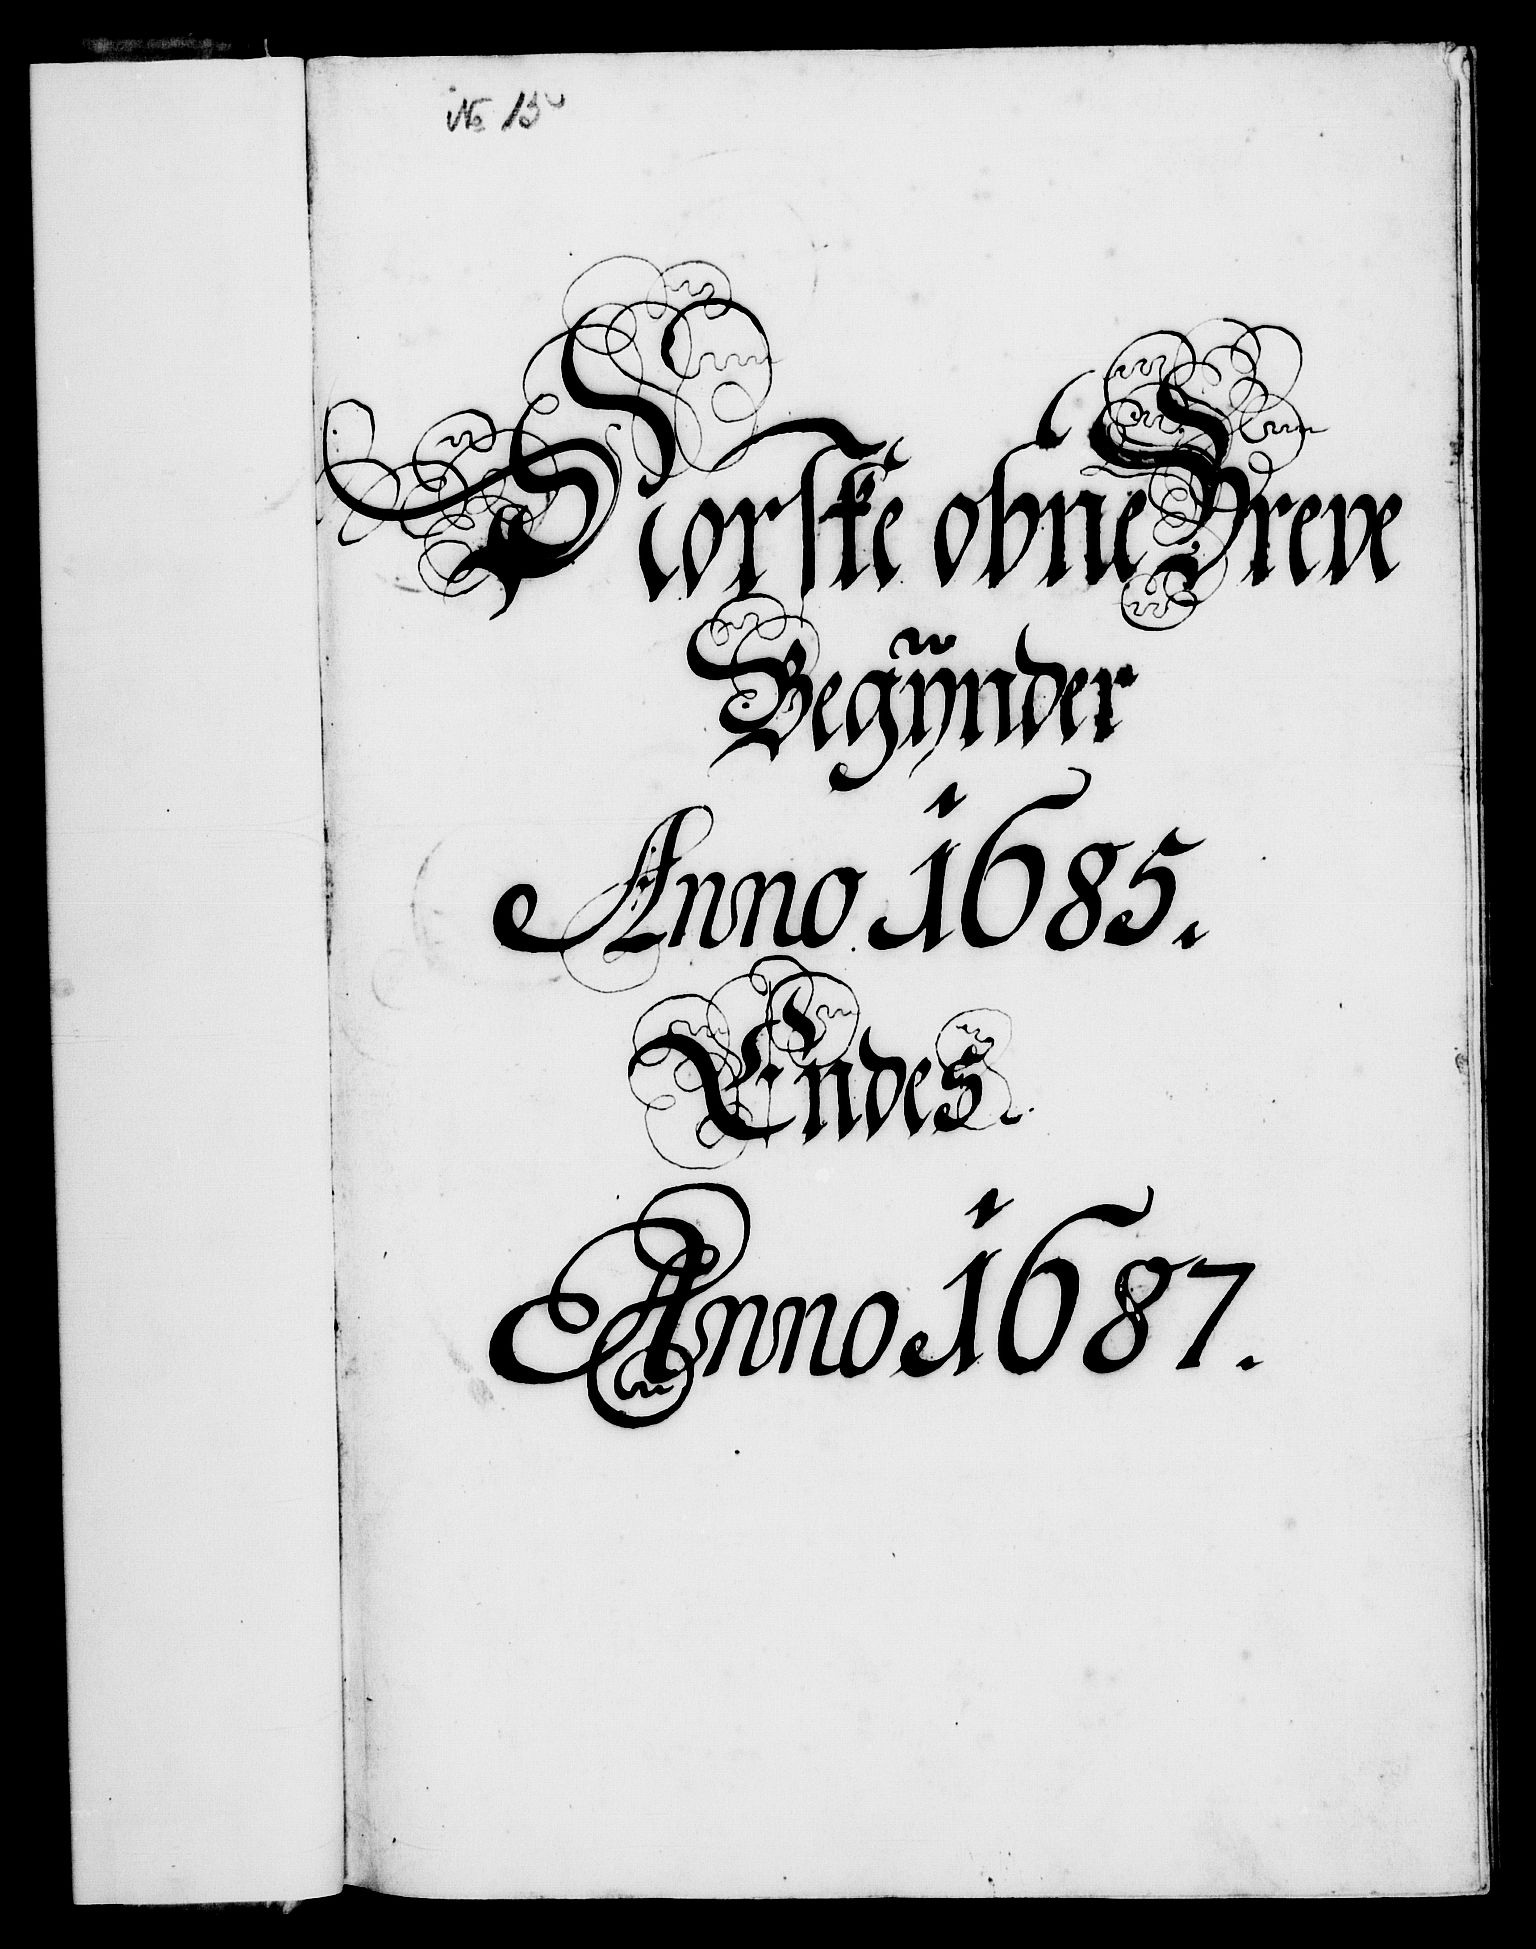 No 13
Norske obne Breve
Begÿnder
Anno 1685.
Endes.
Anno 1687.